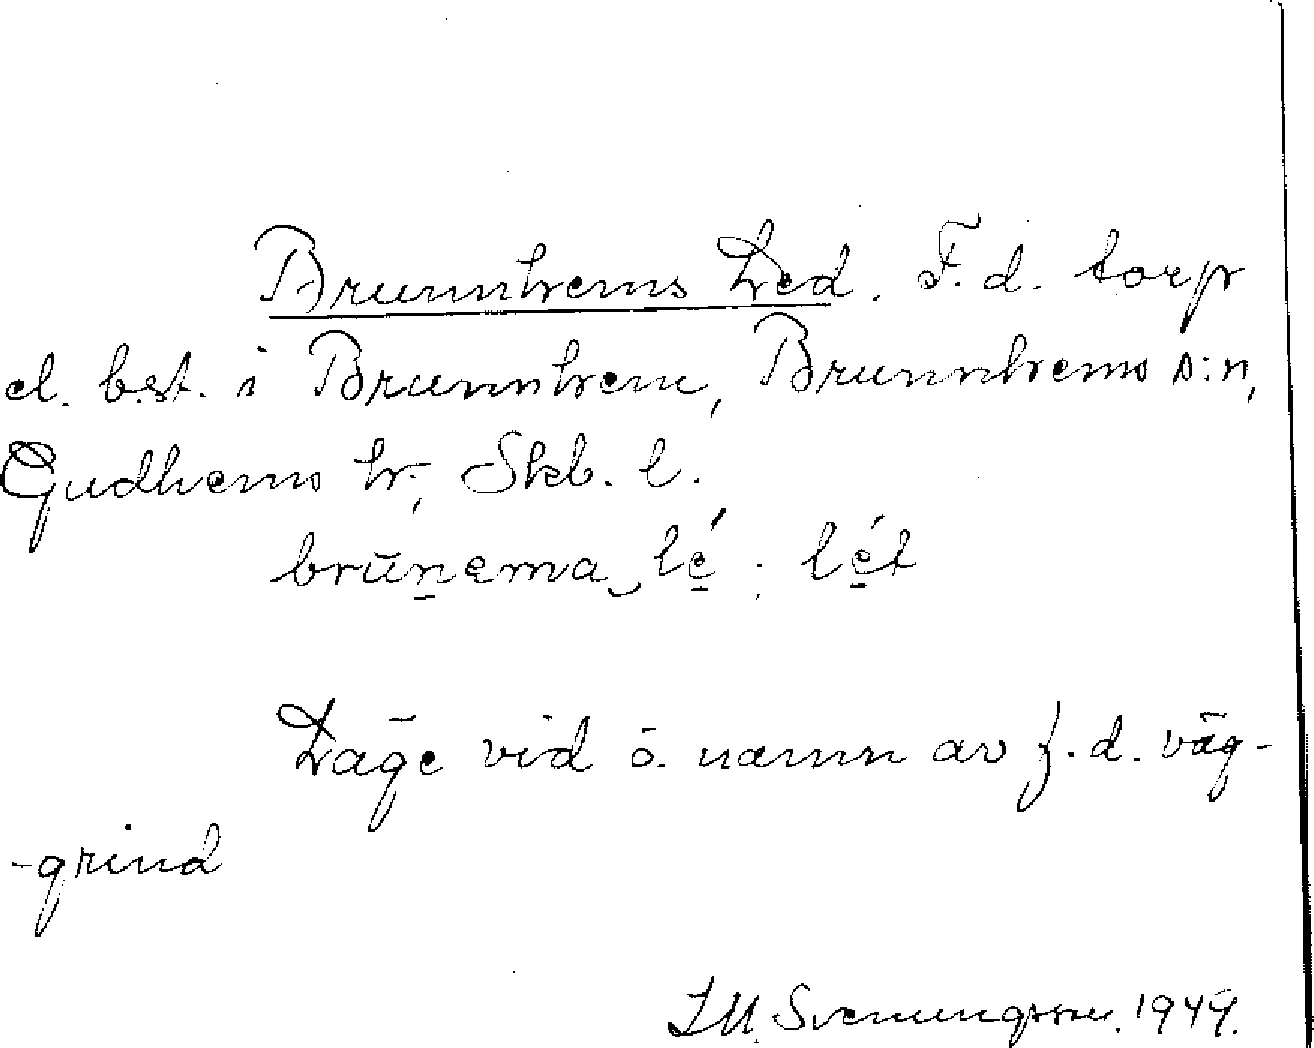 Brunnhems Led. F.d. torp
el. b.st. i Brunnhem, Brunnhems s:n,
Gudhems hr, Skb. l.
brūn̲ema lé̲ ; lé̲t
Läge vid o. namn av f.d. väg-
-grind
Svenungsson. 1949.